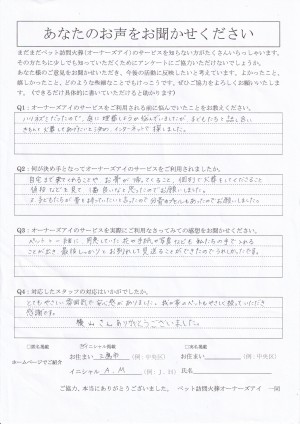 あなたのお声をお聞かせください
まだまだペット訪問火葬(オーナーズアイ)のサービスを知らない方がたくさんいらっしゃいます。
その方たちに少しでも知っていただくためにアンケートにご協力いただけないでしょうか。
あなた様のご意見をお聞かせいただき、今後の活動に反映したいと考えています。よかったこと、
嬉しかったこと、どのような些細なことでもけっこうです。ぜひご協力をよろしくお願いします。
(できるだけ具体的に書いていただけると助かります)
Q1：オーナーズアイのサービスをご利用される前に悩んでいたことをお教えください。
だったので、庭に埋葬しようか悩んでいましたが、子どもたちと話し合い
きちんと火葬してあげたいと決め、インターネットで探しました。
Q2：何が決め手となってオーナーズアイのサービスをご利用されましたか。
自宅まで来てくれることや、お骨が残ってくること、個別で火葬をしてくださること
値段なども見て、1番良いなと思ったのでお願いしました。
又、子どもたちが骨を持っていたいと言ったので、分骨カプセルもあったのでお願いしました。
Q3：オーナーズアイのサービスを実際にご利用なさってみての感想をお聞かせください。
ペットと一緒に、用意していた花や手紙や写真なども、私たちの手で入れる
ことができ、最後しっかりとお別れして見送ることができたのでうれしかったです。
Q4：対応したスタッフの対応はいかがでしたか。
とてもやさしい雰囲気で安心感がありました。我が家のペットもやさしく扱っていただき
感謝です。
横山さんありがとうございました。
ホームページでご紹介
□匿名掲載
☑イニシャル掲載
□実名掲載
お住まい 三鷹市 (例：中央区)
お住まい (例：中央区)
イニシャル A.M (例：J.H)
氏名
ご協力、本当にありがとうございました。 ペット訪問火葬オーナーズアイ 一同